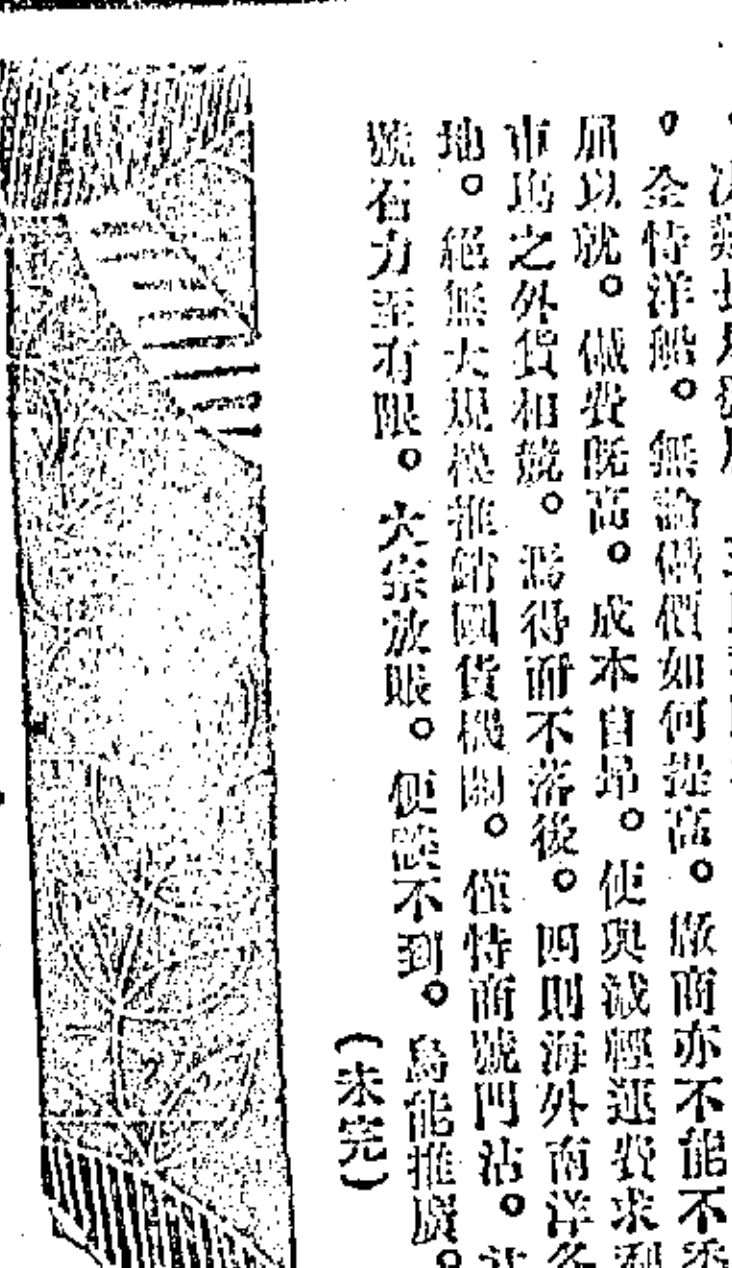 。全恃洋船。無論儎價如何提高。廠商亦不能不委
屈以就。儎費既高。成本自昂。使與減輕運費求到
市島之外貨相競。焉得而不落後。四則海外南洋各
地。絕無大規模推銷國貨機關。僅恃商號門沽。
號石力至有限。大宗放賬。便談不到。烏能推廣。
(未完)